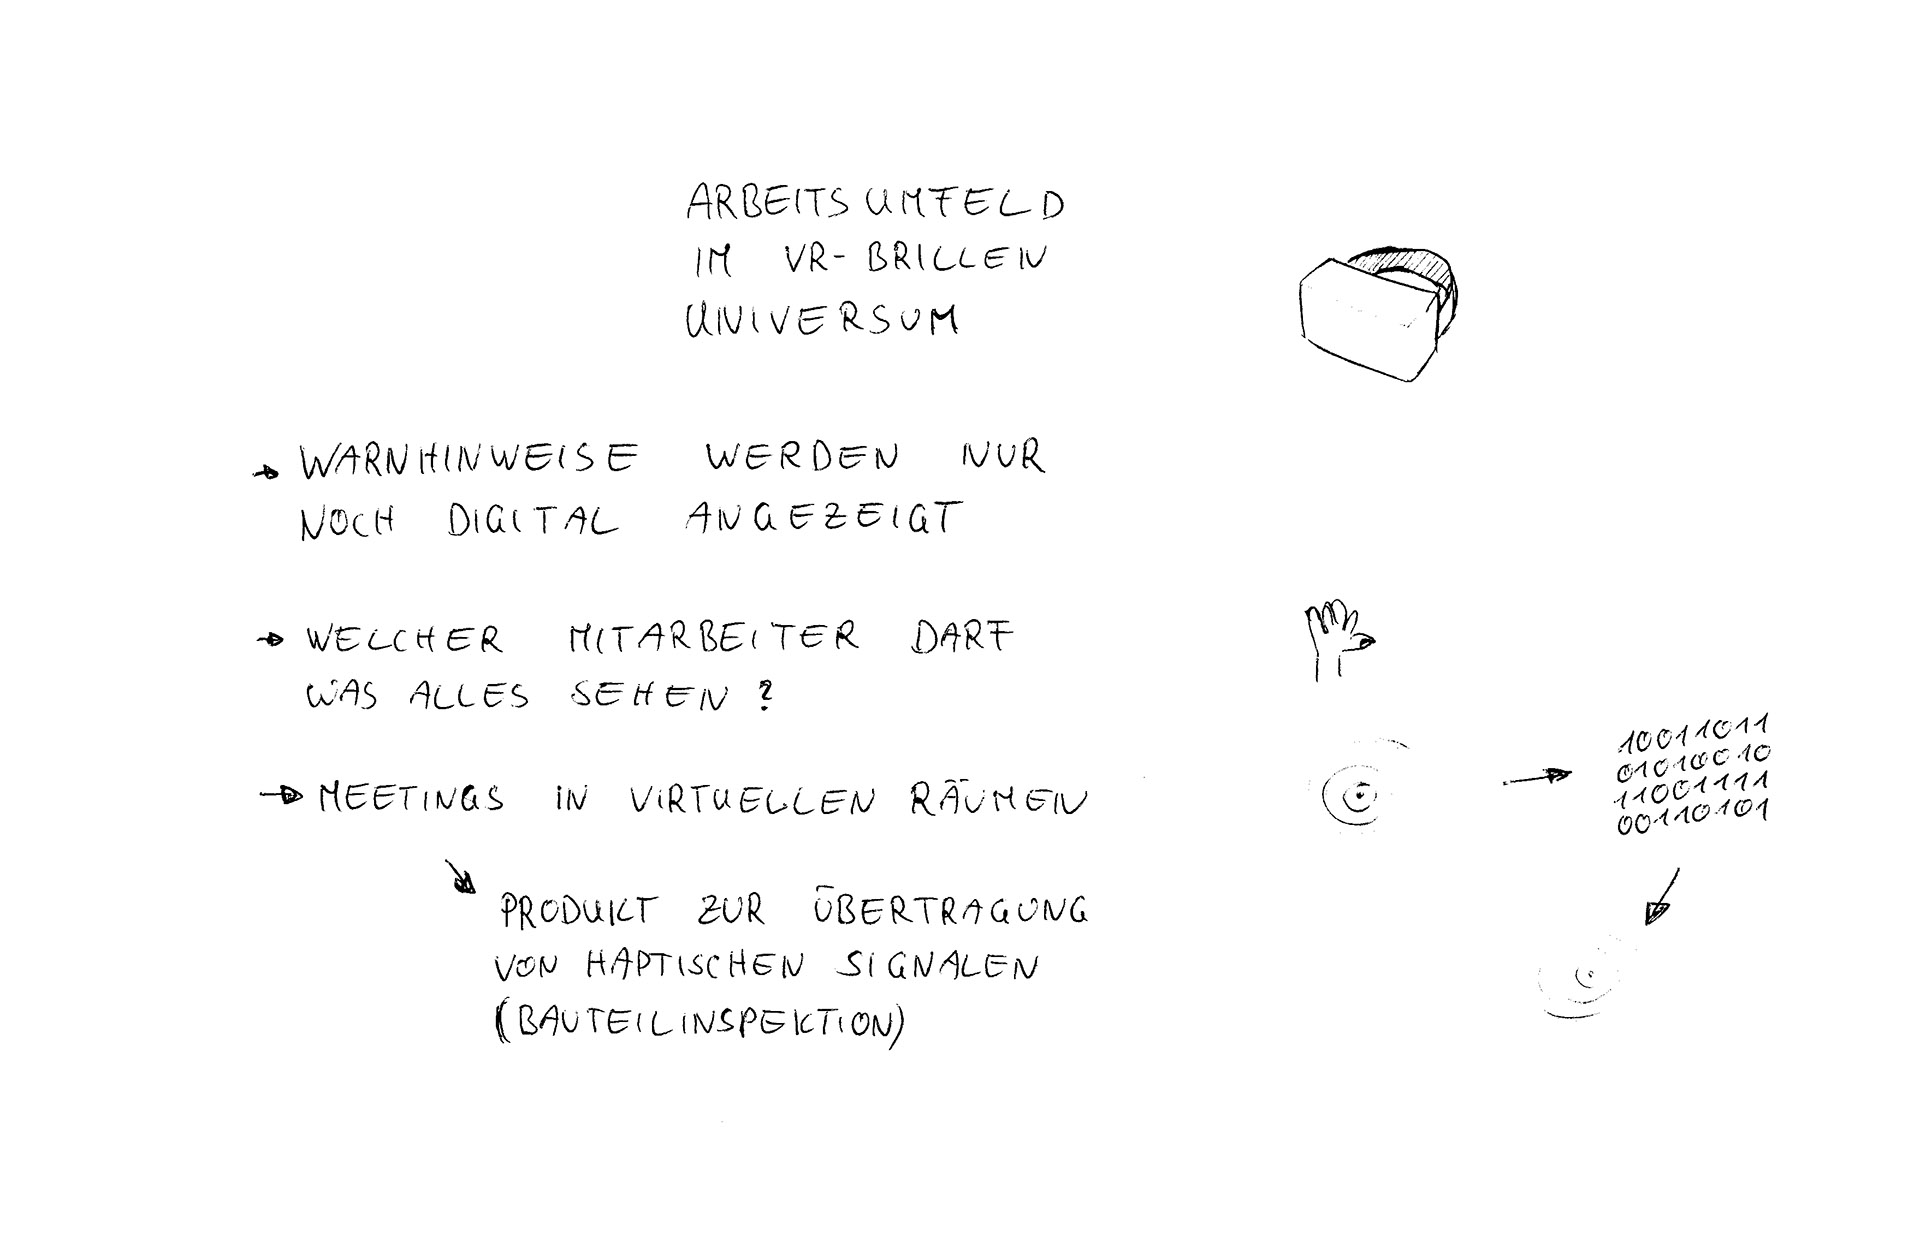 ARBEITSUMFELD
IM VR-BRILLEN
UNIVERSUM
→ WARNHINWEISE WERDEN NUR
NOCH DIGITAL ANGEZEIGT
→ WELCHER MITARBEITER DARF
WAS ALLES SEHEN?
→ MEETINGS IN VIRTUELLEN RÄUMEN
↘ PRODUKT ZUR ÜBERTRAGUNG
VON HAPTISCHEN SIGNALEN
(BAUTEILINSPEKTION)
10011011
01010010
11001111
00110101